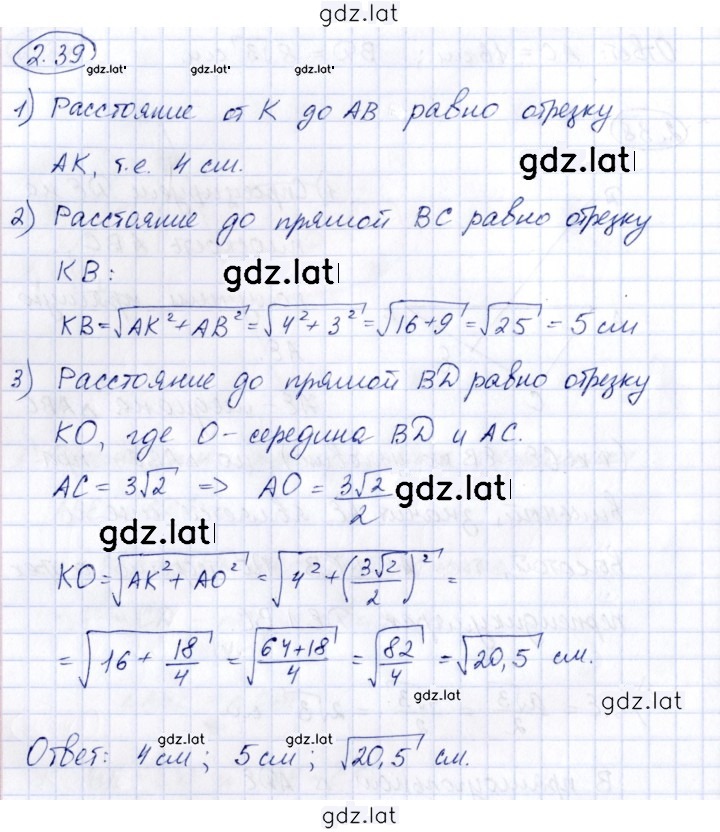 gdz.lat
2.39
gdz.lat gdz.lat gdz.lat
1) Расстояние от K до AB равно отрезку
AK, т.е. 4 см.
gdz.lat
2) Расстояние до прямой BC равно отрезку
KB:
gdz.lat
KB=√AK²+AB²=√4²+3²=√16+9=√25=5 см
3) Расстояние до прямой BD равно отрезку
KO, где O-середина BD и AC.
AC=3√2 => AO=3√2/2
gdz.lat
gdz.lat
KO=√AK²+AO²=√4²+(3√2/2)²=
=√16+18/4=√(64+18)/4=√82/4=√20,5 см.
gdz.lat gdz.lat
gdz.lat gdz.lat
Ответ: 4 см; 5 см; √20,5 см.
gdz.lat